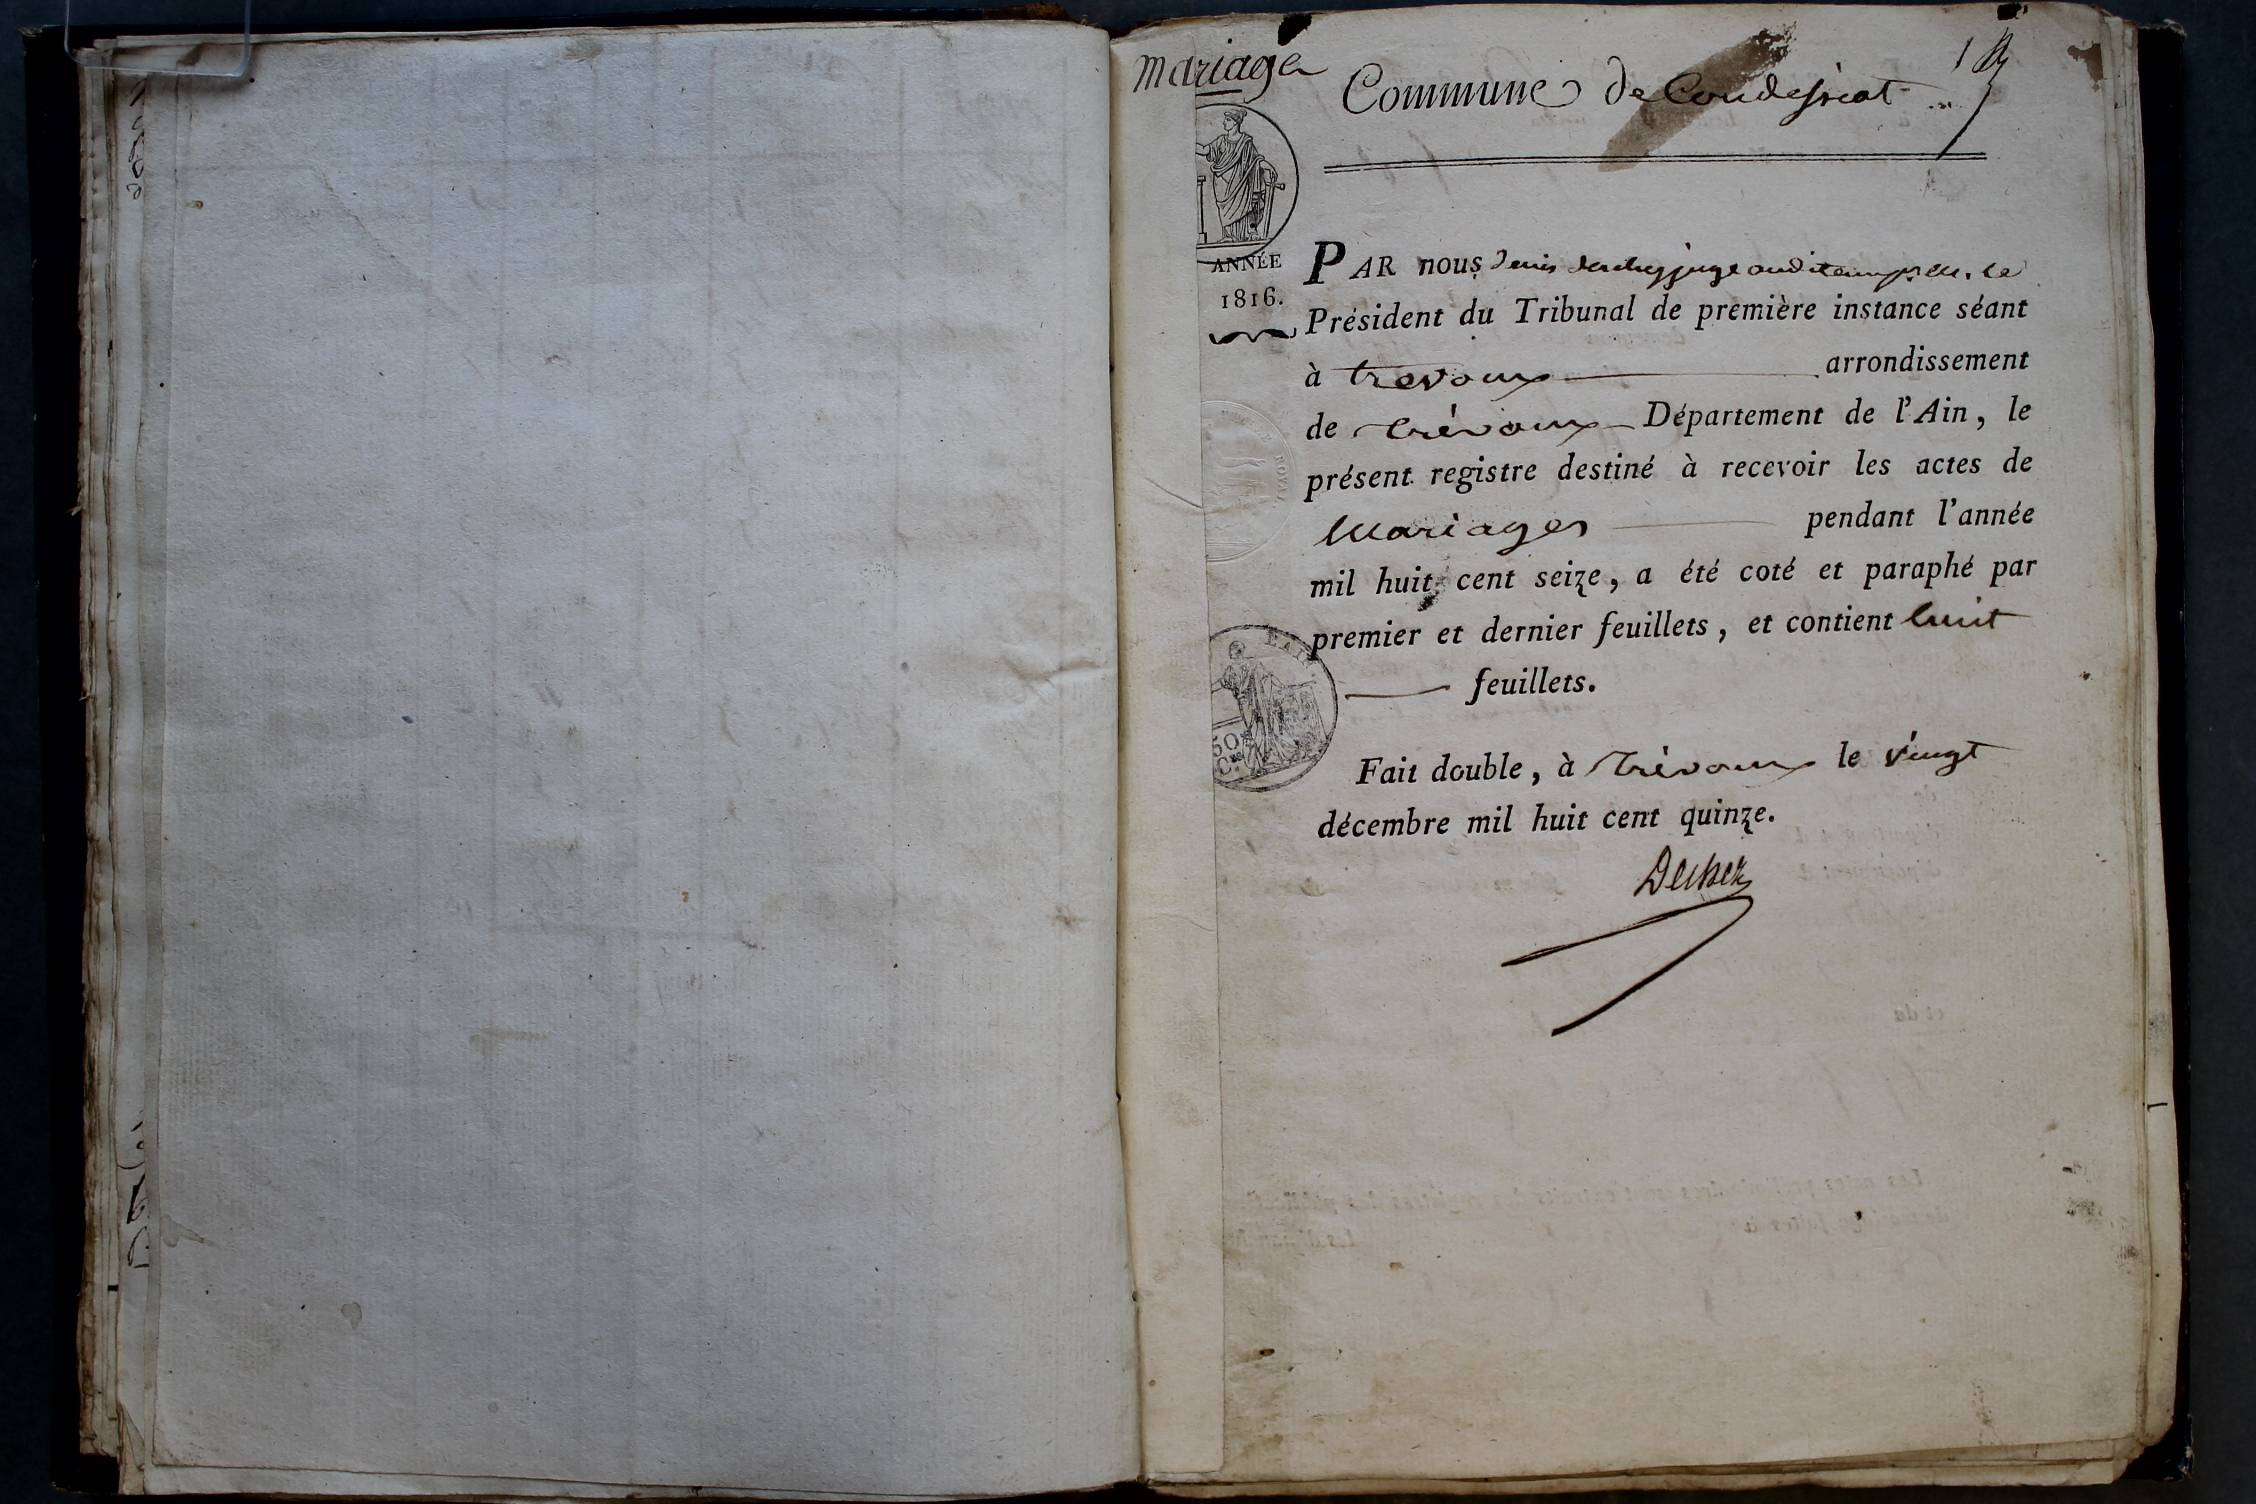 mariage
Commune de Condeissiat
1
ANNÉE
1816.
PAR nous Denis juge auditeur, le
Président du Tribunal de première instance séant
à trevoux arrondissement
de trévoux Département de l'Ain, le
présent registre destiné à recevoir les actes de
Mariages pendant l'année
mil huit cent seize, a été coté et paraphé par
premier et dernier feuillets, et contient huit
feuillets.
50
C.es
Fait double, à Trévoux le vingt
décembre mil huit cent quinze.